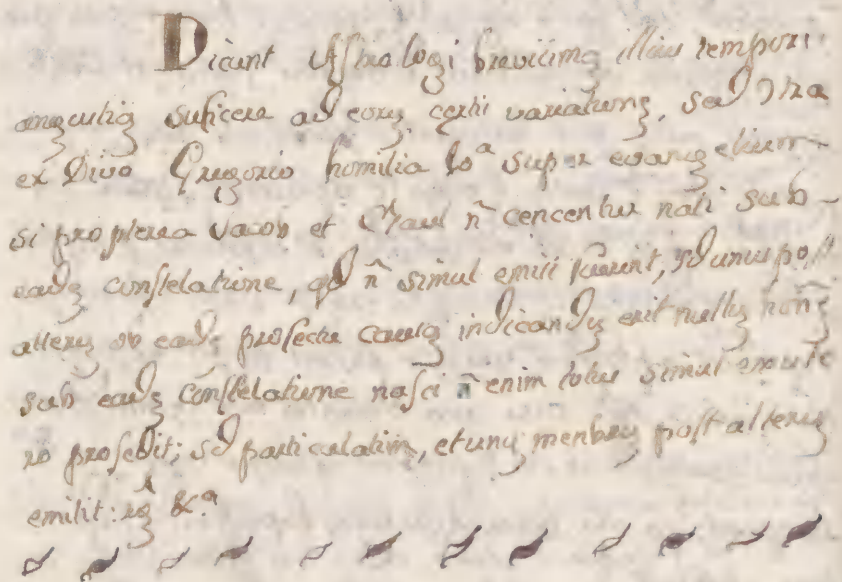 Dicunt Astrologi brevicimã illius temporis
angustiã suficere ad eorũ cęli variationẽ, sed Ↄtra
ex Divo Gregorio homilia 10ª super evangelium
si propterea Jacob et Esau ñ cencentur nati sub
eadẽ constelatione, qđ ñ simul emisi fuerint, sđ unus post
alterũ ob eadẽ profecto causã indicandũ erit nullũ hominẽ
sub eadẽ constelatione nasci ñ enim totus simul ex ute
ro prosedit; sđ particulatim, et unũ menbrũ post alterũ
emitit: &ª